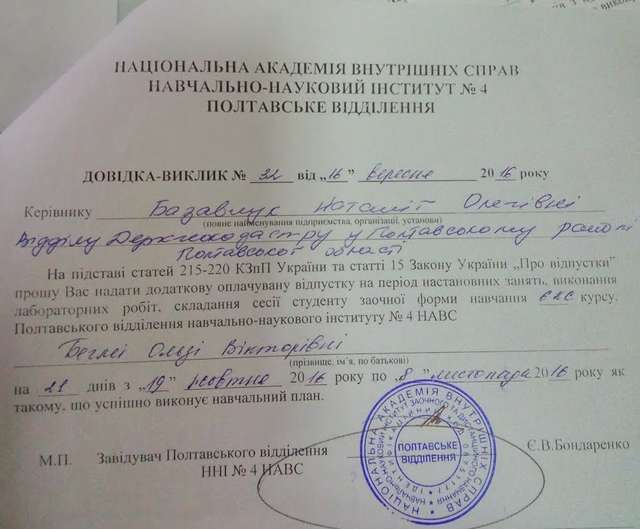 НАЦІОНАЛЬНА АКАДЕМІЯ ВНУТРІШНІХ СПРАВ
НАВЧАЛЬНО-НАУКОВИЙ ІНСТИТУТ № 4
ПОЛТАВСЬКЕ ВІДДІЛЕННЯ
ДОВІДКА-ВИКЛИК № 32 від „16” вересня 2016 року
Керівнику Базавлук Наталії Олегівні
(повне найменування підприємства, організації, установи)
Відділу Держгеокадастру у Полтавському районі
Полтавської області
На підставі статей 215-220 КЗпП України та статті 15 Закону України „Про відпустки”
прошу Вас надати додаткову оплачувану відпустку на період настановних занять, виконання
лабораторних робіт, складання сесії студенту заочної форми навчання курсу,
Полтавського відділення навчально-наукового інституту № 4 НАВС
Беглєі Ользі Вікторівні
(прізвище, ім’я, по батькові)
на 21 днів з „19” жовтня 2016 року по „8” листопада 2016 року як
такому, що успішно виконує навчальний план.
М.П. Завідувач Полтавського відділення Є.В.Бондаренко
ННІ № 4 НАВС
НАЦІОНАЛЬНА АКАДЕМІЯ ВНУТРІШНІХ СПРАВ
ПОЛТАВСЬКЕ
ВІДДІЛЕННЯ